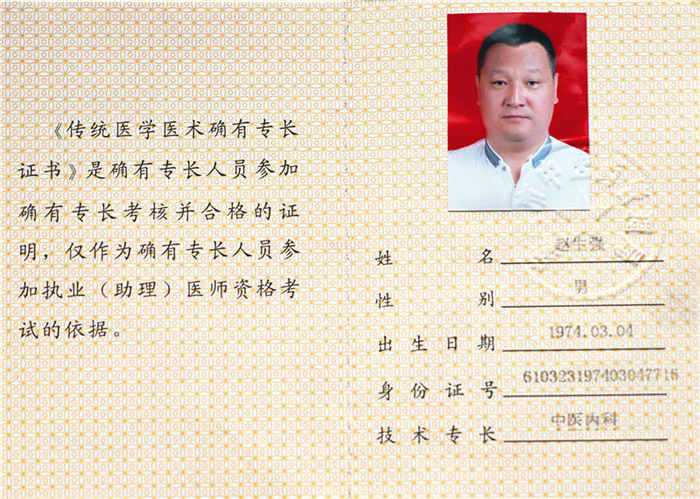 《传统医学医术确有专长
证书》是确有专长人员参加
确有专长考核并合格的证
明，仅作为确有专长人员参
加执业（助理）医师资格考
试的依据。
姓名 赵生强
性别 男
出生日期 1974.03.04
身份证号 610323197403047716
技术专长 中医内科